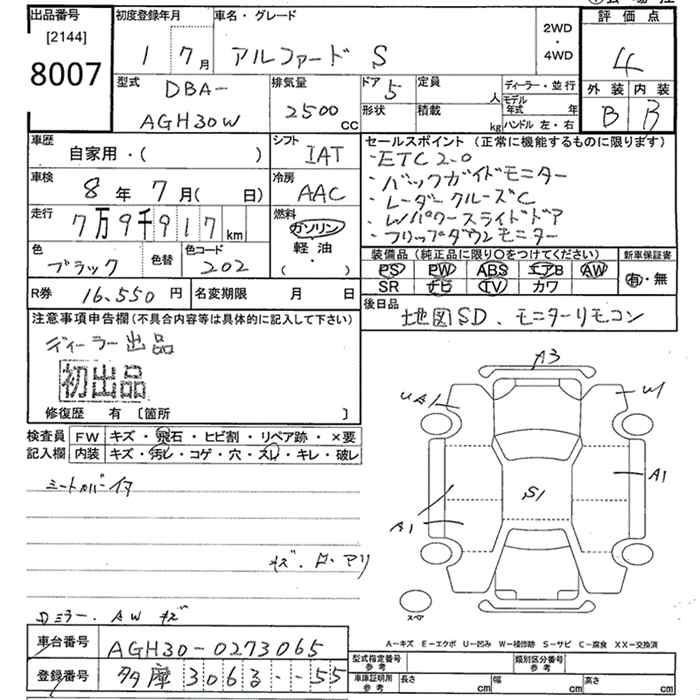 出品番号
[2144]
8007
初度登録年月
1 7月
車名・グレード
アルファード S
2WD
・
4WD
評価点
4
外装 内装
B B
型式
DBA-
AGH30W
排気量
2500
CC
ドア 5
定員
人
形状
積載
kg
ディーラー・並行
モデル年式 年
ハンドル 左・右
車歴
自家用・( )
シフト
IAT
車検
8年7月( 日)
冷房
AAC
走行
7万9千917km
燃料
ガソリン
軽油
・
( )
色
ブラック
色替
色コード
202
R券
16,550円
名変期限
月 日
セールスポイント (正常に機能するものに限ります)
・ETC2.0
・バックガイドモニター
・レーダークルーズC
・Wパワースライドドア
・フリップダウンモニター
装備品 (純正品に限り○をつけてください)
PS PW ABS エアB AW
SR ナビ TV カワ
新車保証書
有・無
後日品
地図SD、モニターリモコン
注意事項申告欄(不具合内容等は具体的に記入して下さい)
ディーラー出品
初出品
修復歴 有 〔箇所 〕
検査員
記入欄
FW キズ・飛石・ヒビ割・リペア跡・×要
内装 キズ・汚レ・コゲ・穴・スレ・キレ・破レ
シートカバーイタ
キズ、
Dミラー、AW キズ
A3
UA1
W1
A1
S1
A1
スペア
A−キズ E−エクボ U−凹み W−補修跡 S−サビ C−腐食 XX−交換済
車台番号
AGH30-0273065
登録番号
多摩 306 3 --55
型式指定番号
参考
類別区分番号
参考
車庫証明用
参考
長さ cm
幅 cm
高さ cm